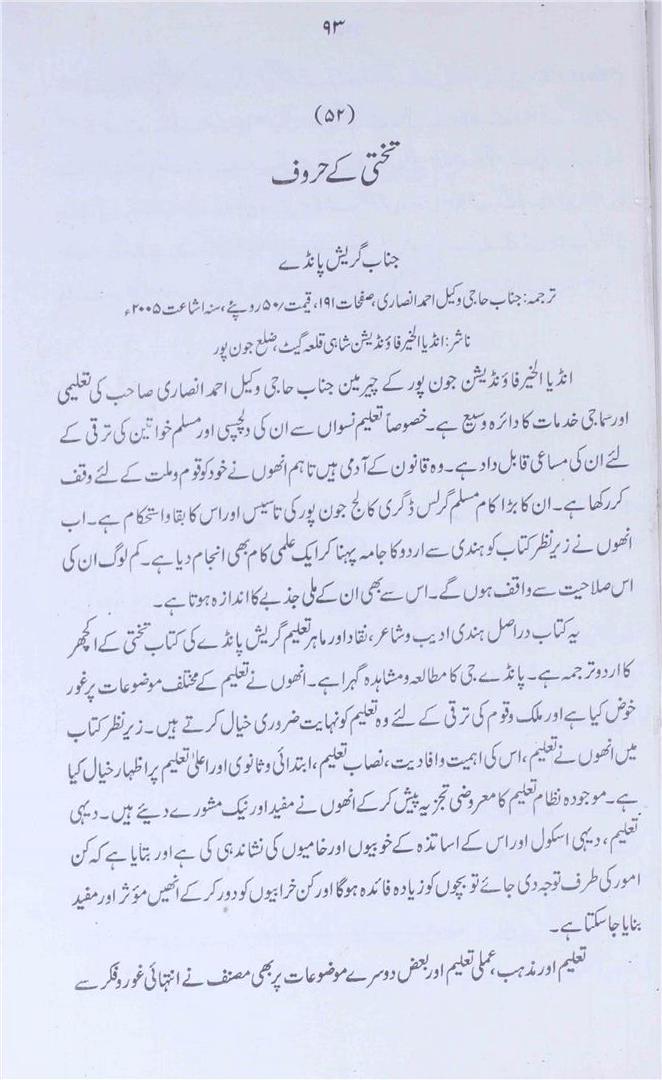 ۹۳
(۵۲)
تختی کے حروف
جناب گریش پانڈے
ترجمہ: جناب حاجی وکیل احمد انصاری، صفحات ۱۹۱، قیمت ۵۰/روپئے، سنہ اشاعت ۲۰۰۵ء
ناشر: انڈیا الخیر فاؤنڈیشن شاہی قلعہ گیٹ، ضلع جون پور
انڈیا الخیر فاؤنڈیشن جون پور کے چیرمین جناب حاجی وکیل احمد انصاری صاحب کی تعلیمی
اور سماجی خدمات کا دائرہ وسیع ہے۔ خصوصاً تعلیم نسواں سے ان کی دلچسپی اور مسلم خواتین کی ترقی کے
لئے ان کی مساعی قابل داد ہے۔ وہ قانون کے آدمی ہیں تاہم انھوں نے خود کو قوم و ملت کے لئے وقف
کر رکھا ہے۔ ان کا بڑا کام مسلم گرلس ڈگری کالج جون پور کی تاسیس اور اس کا بقا و استحکام ہے۔ اب
انھوں نے زیر نظر کتاب کو ہندی سے اردو کا جامہ پہنا کر ایک علمی کام بھی انجام دیا ہے۔ کم لوگ ان کی
اس صلاحیت سے واقف ہوں گے۔ اس سے بھی ان کے ملی جذبے کا اندازہ ہوتا ہے۔
یہ کتاب دراصل ہندی ادیب و شاعر، نقاد اور ماہر تعلیم گریش پانڈے کی کتاب تختی کے اکچھر
کا اردو ترجمہ ہے۔ پانڈے جی کا مطالعہ و مشاہدہ گہرا ہے۔ انھوں نے تعلیم کے مختلف موضوعات پر غور
خوض کیا ہے اور ملک و قوم کی ترقی کے لئے وہ تعلیم کو نہایت ضروری خیال کرتے ہیں۔ زیر نظر کتاب
میں انھوں نے تعلیم، اس کی اہمیت و افادیت، نصاب تعلیم، ابتدائی و ثانوی اور اعلیٰ تعلیم پر اظہار خیال کیا
ہے۔ موجودہ نظام تعلیم کا معروضی تجزیہ پیش کر کے انھوں نے مفید اور نیک مشورے دیئے ہیں۔ دیہی
تعلیم، دیہی اسکول اور اس کے اساتذہ کے خوبیوں اور خامیوں کی نشاندہی کی ہے اور بتایا ہے کہ کن
امور کی طرف توجہ دی جائے تو بچوں کو زیادہ فائدہ ہوگا اور کن خرابیوں کو دور کر کے انھیں مؤثر اور مفید
بنایا جا سکتا ہے۔
تعلیم اور مذہب، عملی تعلیم اور بعض دوسرے موضوعات پر بھی مصنف نے انتہائی غور و فکر سے